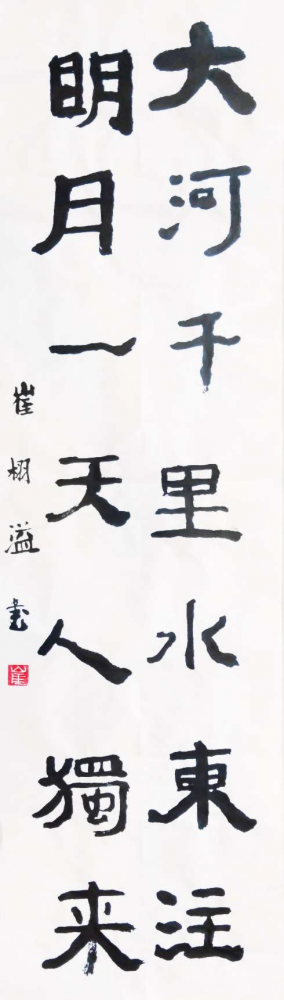 大河千里水東注
明月一天人獨来
崔栩溢書
崔